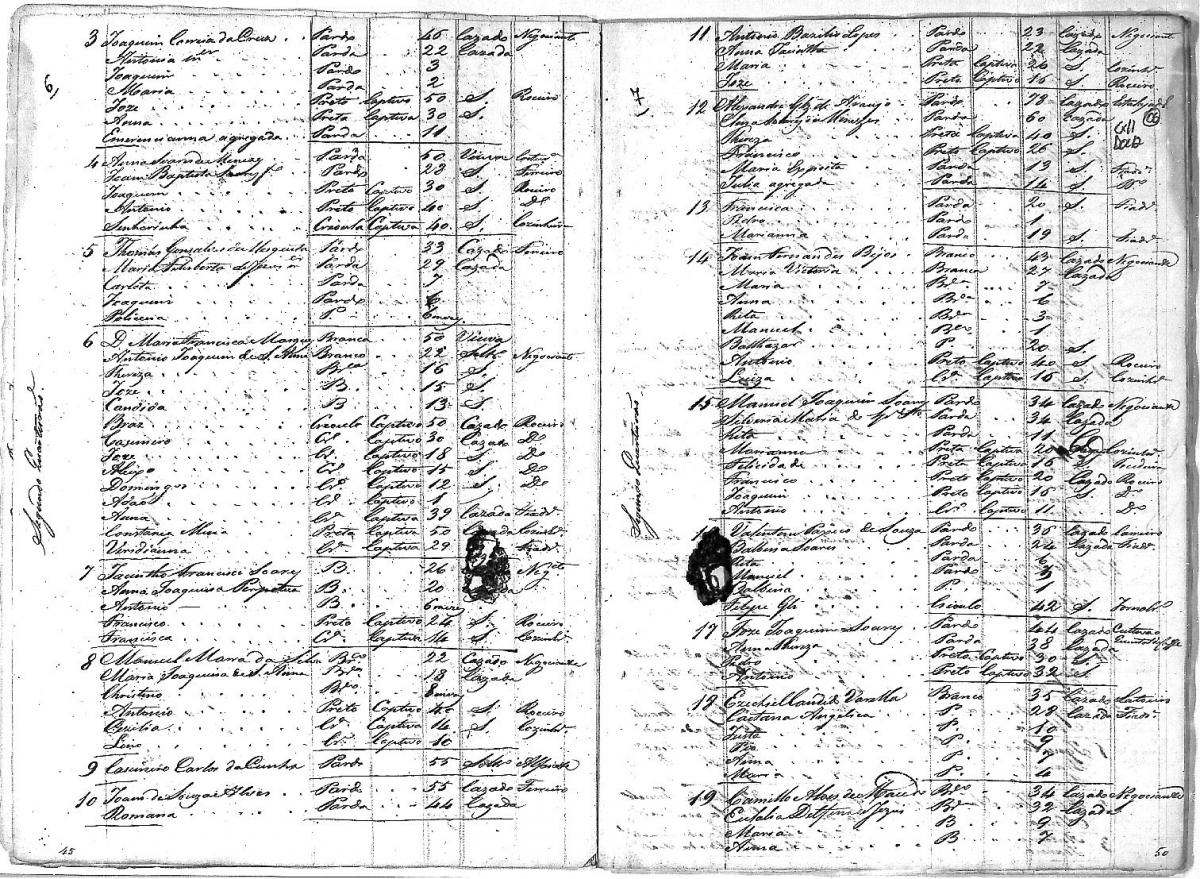 6,
Segundo Quarteirão
3 Joaquim Correia da Cruz Pardo 46 Cazado Negociante
Antonia Parda 22 Cazada
Joaquim Pardo 3
Maria Parda 2
Joze Preto Captivo 50 S. Roceiro
Anna Preta Captiva 30 S.
Emerencianna agregada Parda 11
4 Anna Parda 50 Viuva
Joam Baptista Soares Pardo 23 S. Ferreiro
Joaquim Preto Captivo 30 S. Roceiro
Antonio Preto Captivo 40 S. Do
Senhorinha Creoula Captiva 40 S. Cozinheira
5 Thomas Gonsalves de Mesquita Pardo 33 Cazado Ferreiro
Maria Parda 29 Cazada
Carlota Parda 7
Joaquim Pardo 6
Policena P. 6 mezes
6 D. Maria Francisca Branca 50 Viuva
Antonio Joaquim de S. Anna Branco 22 Solto Negociante
Thereza Bca 16 S.
Joze B. 15 S.
Candida B 13 S
Braz Creoulo Captivo 50 Cazado Roceiro
Casimiro Cr. Captivo 30 Cazado Do
Joze Cr. Captivo 18 S. Do
Aleixo Cr. Captivo 15 S. Do
Domingos Cr. Captivo 12 S. Do
Adaõ Cr. Captivo 1
Anna Cr. Captiva 39 Cazada Fiadra
Constança Preta Captiva 50 Cozinhra
Viridianna Cr. Captiva 29 Fiadra
7 Jacintho Francisco Soares B. 26 Negte
Anna Joaquina Perpetua B. 20
Antonio B. 6 mezes
Francisco Preto Captivo 24 S. Roceiro
Francisca Cr. Captiva 14 S. Cozinhra
8 Manuel Maria da Silva Bco 22 Cazado Negociante
Maria Joaquina de S. Anna Bca 18 Cazada
Christino Bco 8 mezes
Antonio Preto Captivo 46 S. Roceiro
Cecilia Cr. Captiva 14 S. Cozinhra
Lino Cr. Captivo 10
9 Casimiro Carlos da Cunha Pardo 55 Solto Alfaiate
10 Joam de Souza Alves Pardo 55 Cazado Ferreiro
Romana Parda 44 Cazada
45
7,
Segundo Quarteirão
11 Antonio Bazilio Lopes Pardo 23 Cazado Negociante
Anna Jacintha Parda 22 Cazada
Maria Preta Captiva 26 S. Cozinhra
Joze Preto Captivo 16 S. Roceiro
12 Alexandre Glz. d. Araujo Pardo 78 Cazado
Menezes Parda 60 Cazada
Thereza Preta Captiva 40 S.
Francisco Preto Captivo 26 S.
Maria Parda 13 S. Fiadra
Julia agregada Parda 14 S. Do
106
13 Francisca Parda 20 S. Fiadra
Pedro Pardo 1
Marianna Parda 19 S. Fiadra
14 Joam Fernandes Branco 43 Cazado Negociante
Maria Victoria Branca 27 Cazada
Maria Bca 7
Anna 6
Rita Bca 3
Manuel Bco 1
Balthazar P. 20 S.
Antonio Preto Captivo 40 S. Roceiro
Luiza Cr. Captiva 16 S. Cozinhra
15 Manuel Joaquim Soares Pardo 34 Cazado Negociante
Silveria Maria de Parda 34 Cazada
Rita Parda 11
Marianna Preta Captiva 20 Cozinhra
Felicidade Preta Captiva 16
Francisco Preto Captivo 20 Cazado Roceiro
Joaquim Preto Captivo 16 S. Do
Antonio Cr. Captivo 11 Do
16 Valentim de Souza Pardo 36 Cazado
Balbina Soares Parda 24 Cazada Fiadra
Rita Parda 6
Manuel Pardo
Balbina P. 1
Felipe Glz Crioulo 42 S.
17 Joze Joaquim Soares Pardo 44 Cazado
Anna Thereza Parda 38 Cazada
Pedro Preto Captivo 30 S.
Antonio Preto Captivo 32 S.
18 Ezechiel Candido Varella Branco 35 Cazado Latoeiro
Caetana Angelica P. 28 Cazada Fiadra
Justa P. 10
P. 9
Anna P. 7
Maria P. 4
19 Camillo Alves de Macedo Bco 34 Cazado Negociante
Eulalia Delfina de Jezus Bca 32 Cazada
Maria B 9
Anna B. 7
50